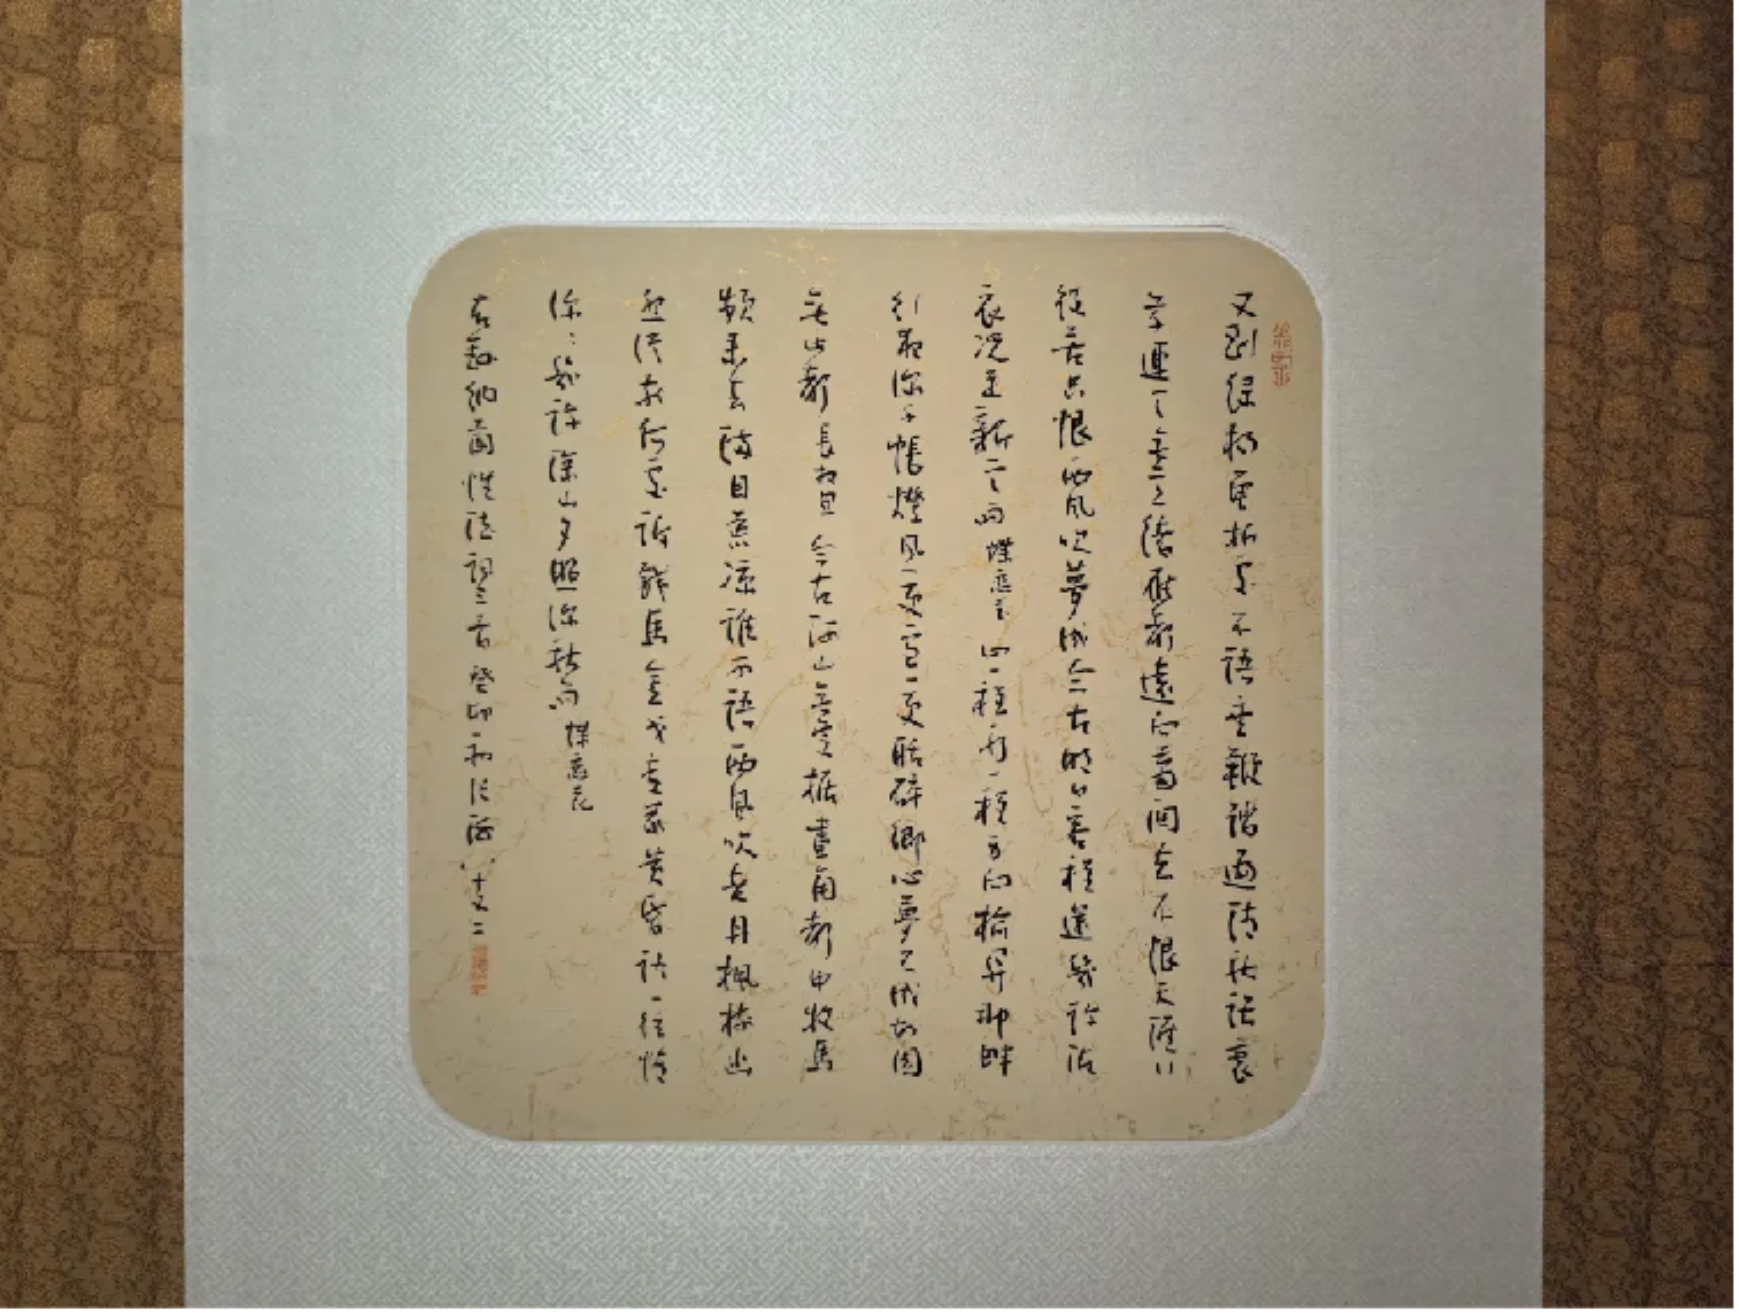 又到綠楊曾折處不語垂鞭踏遍清秋路衰
草連天無意緒雁聲遠向蕭關去不恨天涯行
役苦只恨西風吹夢成今古明日客程還幾許沾
衣況是新寒雨 蝶戀花 山一程水一程身向榆關那畔
行夜深千帳燈風一更雪一更聒碎鄉心夢不成故園
無此聲 長相思 今古河山無定據畫角聲中牧馬
頻來去滿目荒涼誰可語西風吹老丹楓樹幽
怨從前何處訴鐵馬金戈青冢黃昏路一往情
深深幾許深山夕照深秋雨 蝶戀花
右錄納蘭性德詞三首癸卯初